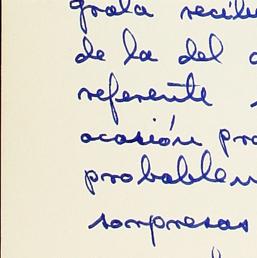 grata recibi
de la del a
referente
ocasión pro
probablem
sorpresas